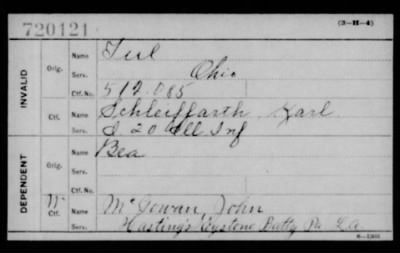 720121
(3-H-4)
INVALID
Orig.
Name Teel
Serv. Ohio
Ctf. No. 512.085
Ctf.
Name Schleiffarth Karl
Serv. I 20 Ill Inf
DEPENDENT
Orig.
Name Bea
Serv.
W
Ctf.
Name McGowan, John
Serv. Hasting's Keystone Batty Pa L.A